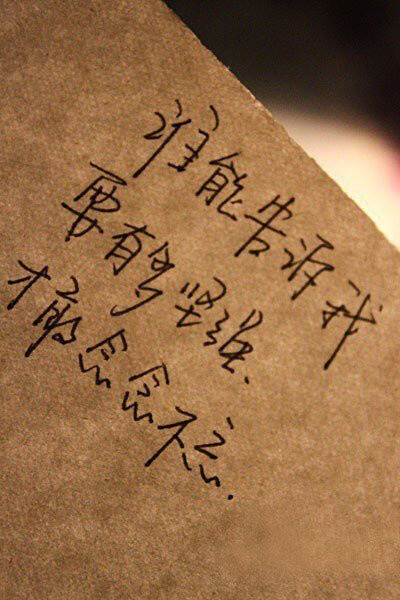 谁能告诉我
要有多坚强.
才敢念念不忘.